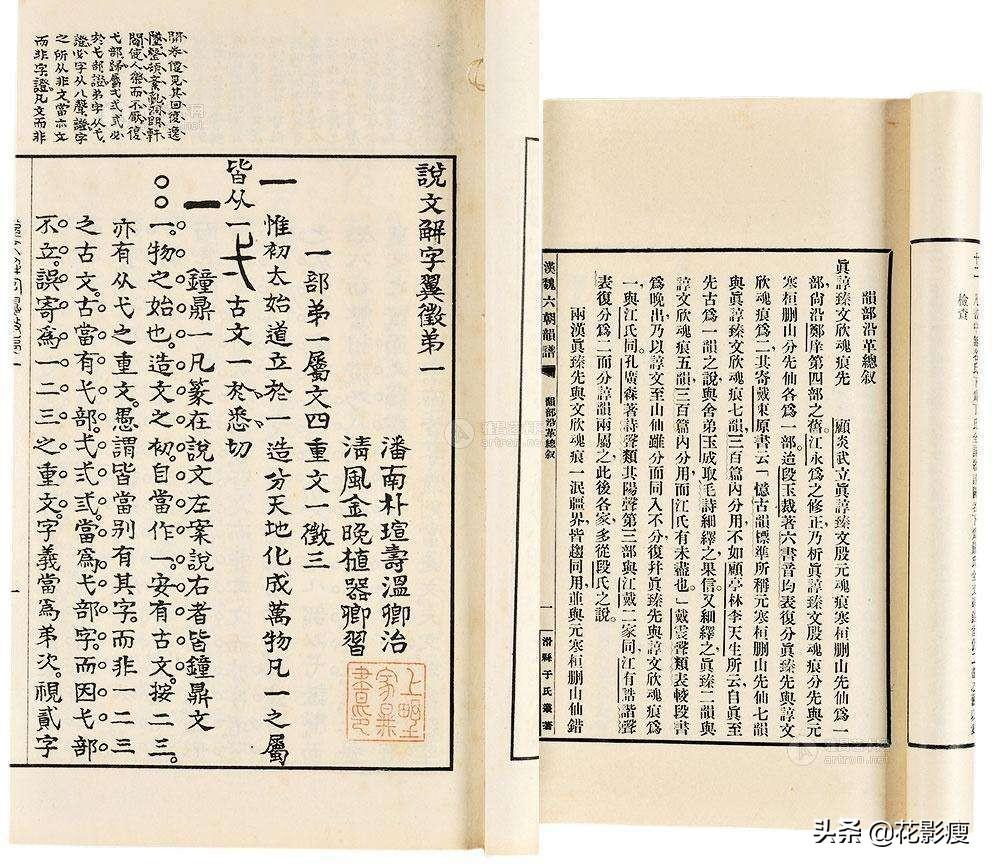 開卷僅見其回復逸
閒使人樂而不厭復
弋部歸屬弌弍弎必
於弋部證弟字从弋
證必字从八聲證字
之所从非文當亦文
而非字證凡文而非
說文解字翼徵弟一
潘南朴瑄壽溫卿治
淸風金晚植器卿習
一部弟一屬文四重文一徵三
一
惟初太始道立於一造分天地化成萬物凡一之屬
皆从一弌古文一於悉切
一
鐘鼎一凡篆在說文左案說右者皆鐘鼎文
一物之始也造文之初自當作一安有古文按二三
亦有从弋之重文愚謂皆當别有其字而非一二三
之古文古當有弋部弌弍弎當爲弋部字而因弋部
不立誤寄爲一二三之重文字義當爲弟次視貳字
韻部沿革總叙
眞諄臻文欣魂痕先
顧炎武立眞諄臻文殷元魂痕寒桓刪山先仙爲一
部尙沿鄭庠第四部之舊江永爲之修正乃析眞諄臻文殷魂痕分先與元
寒桓刪山分先仙各爲一部迨段玉裁著六書音均表復分眞臻先與諄文
欣魂痕爲二其寄戴東原書云「憶古韻標準所稱元寒桓刪山先仙七韻
與眞諄臻文欣魂痕七韻三百篇內分用不如顧亭林李天生所云自眞至
先古爲一韻之說與舍弟玉成取毛詩細繹之果信又細繹之眞臻二韻與
諄文欣魂痕五韻三百篇內分用而江氏有未盡也」戴震聲類表較段書
爲晚出乃以諄文至山仙雖分而同入不分復幷眞臻先與諄文欣魂痕爲
一與江氏同孔廣森著詩聲類其陽聲第三部與江戴二家同江有誥諧聲
表復分爲二而分諄韻兩屬之此後各家多從段氏之說
兩漢眞臻先與文欣魂痕一泯疆界皆趨同用並與元寒桓刪山仙錯
漢魏六朝韻譜
韻部沿革總叙
一
滑縣于氏叢著
檢查
雅昌艺术网
artron.net
头条 @花影瘦